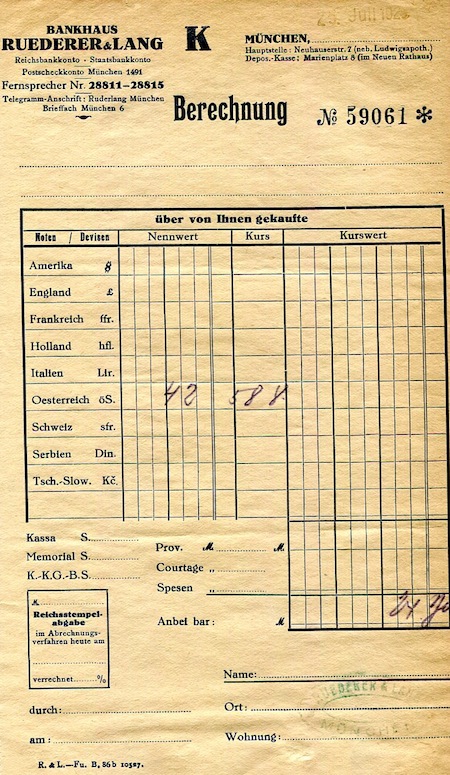 BANKHAUS
RUEDERER & LANG
Reichsbankkonto · Staatsbankkonto
Postscheckkonto München 1491
Fernsprecher Nr. 28811–28815
Telegramm-Anschrift: Ruderlang München
Brieffach München 6
K
Juli
MÜNCHEN,
Hauptstelle: Neuhauserstr. 7 (neb. Ludwigsapoth.)
Depos.-Kasse: Marienplatz 8 (im Neuen Rathaus)
Berechnung
№ 59061 *
über von Ihnen gekaufte
Noten / Devisen Nennwert Kurs Kurswert
Amerika $
England £
Frankreich ffr.
Holland hfl.
Italien Lir.
Oesterreich öS. 42 588
Schweiz sfr.
Serbien Din.
Tsch.-Slow. Kč.
Kassa S.
Memorial S.
K.-K.G.-B.S.
Prov. M. M.
Courtage „
Spesen „
Anbei bar: M 24.
M.
Reichsstempel-
abgabe
im Abrechnungs-
verfahren heute am
verrechnet %
Name:
RUEDERER & LANG
MÜNCHEN
durch:
Ort:
am:
Wohnung:
R. & L.—Fu. B, 86b 10327.